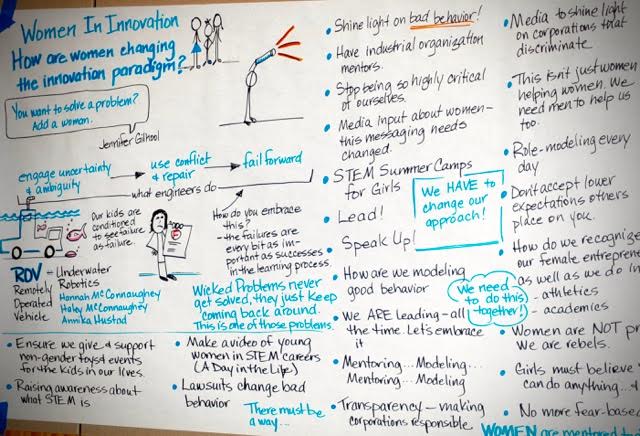 Women In Innovation
How are women changing
the innovation paradigm?
You want to solve a problem?
Add a woman.
Jennifer Gilhool
engage uncertainty
& ambiguity
use conflict
& repair
fail forward
what engineers do
Our kids are
conditioned
to see failure
as failure.
How do you embrace
this?
- the failures are
every bit as im-
portant as successes
in the learning process.
ROV - Underwater
Remotely Robotics
Operated Hannah McConnaughey
Vehicle Haley McConnaughey
Annika Hustad
Wicked Problems never
get solved, they just keep
coming back around.
This is one of those problems.
• Ensure we give & support
non-gender toys & events
for the kids in our lives.
• Raising awareness about
what STEM is
• Make a video of young
women in STEM careers
(A Day in the Life)
• Lawsuits change bad
behavior
There must be
a way...
• Shine light on bad behavior!
• Have industrial organization
mentors.
• Stop being so highly critical
of ourselves.
• Media input about women-
this messaging needs
changed.
• STEM Summer Camps
for Girls
• Lead!
• Speak Up!
We HAVE to
change our
approach!
• How are we modeling
good behavior
• We ARE leading - all
the time. Let's embrace
it
We need
to do this
together!
• Mentoring... Modeling...
Mentoring... Modeling
• Transparency - making
corporations responsible
• Media to shine light
on corporations that
discriminate.
• This isn't just women
helping women. We
need men to help us
too.
• Role-modeling every
day
• Don't accept lower
expectations others
place on you.
• How do we recognize
our female
as well as we do in
- athletics
- academics
• Women are NOT
we are rebels.
• Girls must believe
can do anything...
• No more fear-
WOMEN are mentored